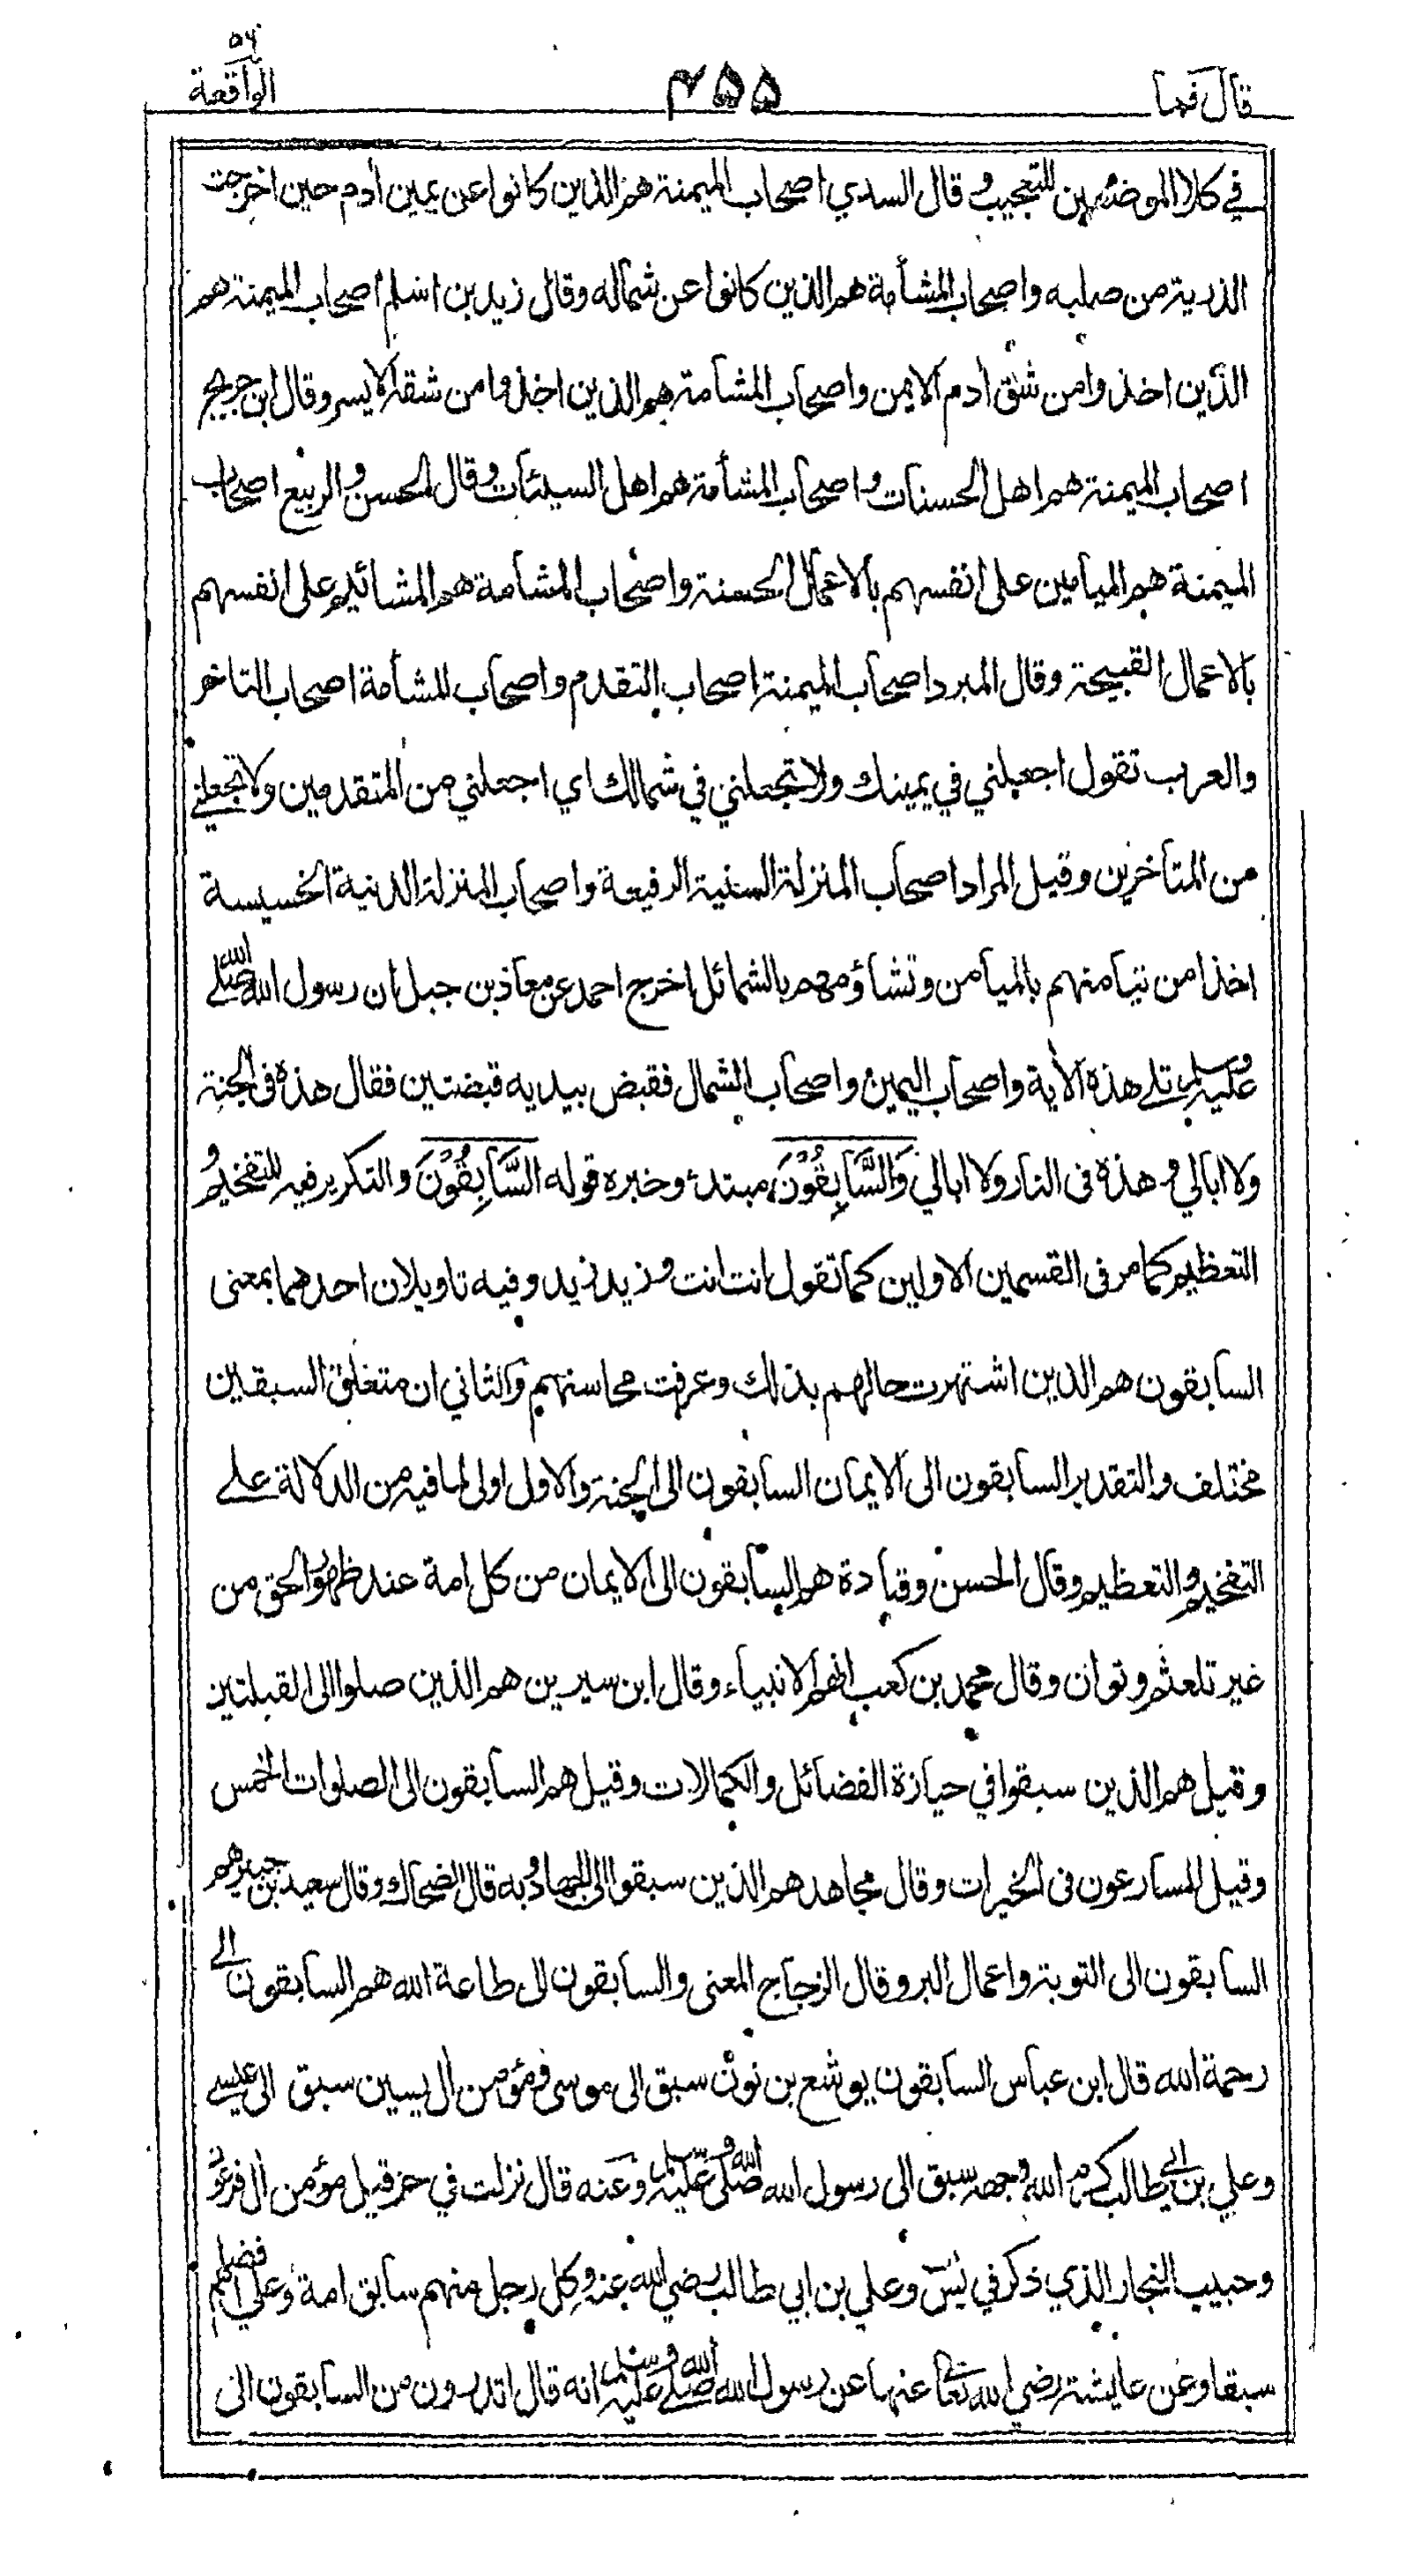 قال فما
٤٥٥
الواقعة
٥٦
في كلا الموضعين للتعجيب وقال السدي اصحاب الميمنة هم الذين كانوا عن يمين أدم حين اخرجت
الذرية من صلبه واصحاب المشأمة هم الذين كانوا عن شماله وقال زيد بن اسلم اصحاب الميمنة هم
الذين اخذوا من شق أدم الايمن واصحاب المشامة هم الذين اخذوا من شقه الايسر وقال ابن جريج
اصحاب الميمنة هم اهل الحسنات واصحاب المشأمة هم اهل السيئات وقال الحسن والربيع اصحاب
الميمنة هم الميامين على انفسهم بالاعمال الحسنة واصحاب المشامة هم المشائيم على انفسهم
بالاعمال القبيحة وقال المبرد اصحاب الميمنة اصحاب التقدم واصحاب المشأمة اصحاب التاخر
والعرب تقول اجعلني في يمينك ولا تجعلني في شمالك اي اجعلني من المتقدمين ولا تجعلني
من المتأخرين وقيل المراد اصحاب المنزلة السنية الرفيعة واصحاب المنزلة الدنية الخسيسة
اخذا من تيامنهم بالميامن وتشاؤمهم بالشمائل اخرج احمد عن معاذ بن جبل ان رسول الله صلى الله
عليه وسلم تلے هذه الأية واصحاب اليمين واصحاب الشمال فقبض بيديه قبضتين فقال هذه في الجنة
ولا ابالي وهذة في النار ولا ابالي وَالسَّابِقُوْنَ مبتدئ وخبره قوله السَّابِقُوْنَ والتكرير فيه للتفخيم و
التعظيم كما مر في القسمين الاولين كما تقول انت انت وزيد زيد وفيه تاويلان احدهما بمعنى
السابقون هم الذين اشتهرت حالهم بذلك وعرفت محاسنهم والثاني ان متعلق السبقين
مختلف والتقدير السابقون الى الايمان السابقون الى الجنة والاول اولى لما فيه من الدلالة علے
التفخيم والتعظيم وقال الحسن وقتادة هم السابقون الى الايمان من كل امة عند ظهور الحق من
غير تلعثم وتوان وقال محمد بن كعب انهم الانبياء وقال ابن سيرين هم الذين صلوا الى القبلتين
وقيل هم الذين سبقوا في حيازة الفضائل والكمالات وقيل هم السابقون الى الصلوات الخمس
وقيل المسارعون في الخيرات وقال مجاهد هم الذين سبقوا الى الجهاد وبه قال الضحاك وقال سعيد بن جبير هم
السابقون الى التوبة واعمال البر وقال الزجاج المعنى والسابقون الى طاعة الله هم السابقون الى
رحمة الله قال ابن عباس السابقون يوشع بن نون سبق الى موسى ومؤمن أل يسين سبق الى عيسے
وعلي بن ابي طالب كرم الله وجهه سبق الى رسول الله صلى الله عليه وسلم وعنه قال نزلت في حزقيل مؤمن أل فرعون
وحبيب النجار الذي ذكر في يس وعلي بن ابي طالب رضي الله عنه وكل رجل منهم سابق امة وعلي افضلهم
سبقا وعن عايشة رضي الله تعا عنها عن رسول الله صلى الله عليه وسلم انه قال اتدرون من السابقون الى